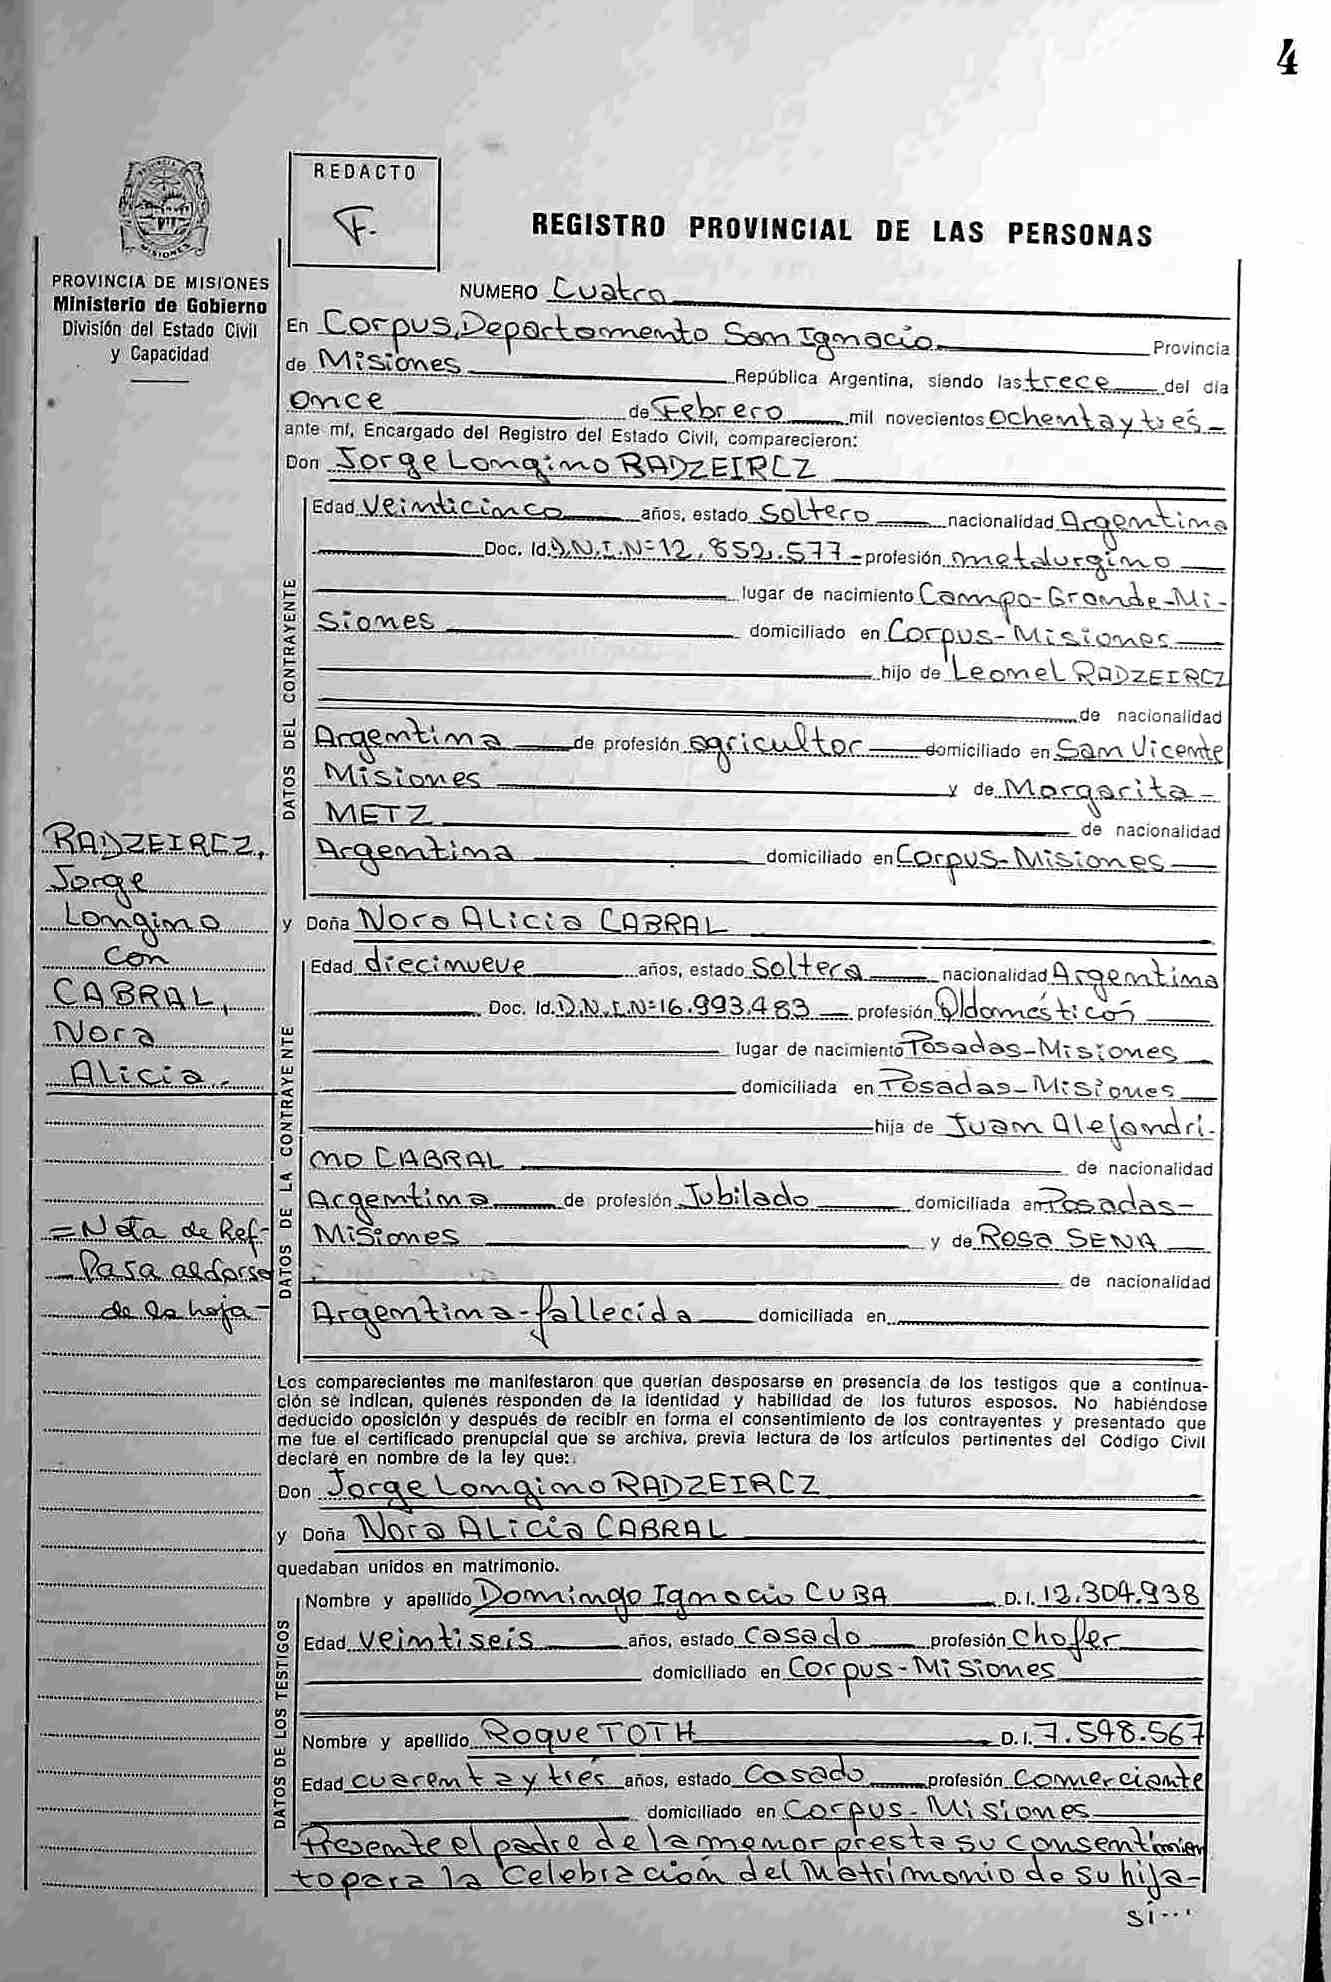 4
REDACTO
F.
REGISTRO PROVINCIAL DE LAS PERSONAS
PROVINCIA DE MISIONES
Ministerio de Gobierno
División del Estado Civil
y Capacidad
NUMERO Cuatro
En Corpus, Departamento San Ignacio Provincia
de Misiones República Argentina, siendo las trece del día
once de Febrero mil novecientos ochenta y tres -
ante mí, Encargado del Registro del Estado Civil, comparecieron:
Don Jorge Longino RADZEIRCZ
DATOS DEL CONTRAYENTE
Edad Veinticinco años, estado Soltero nacionalidad Argentina
Doc. Id. D.N.I.Nº 12.852.577 - profesión metalurgino
lugar de nacimiento Campo-Grande-Mi-
siones domiciliado en Corpus-Misiones
hijo de Leonel RADZEIRCZ
de nacionalidad
Argentina de profesión agricultor domiciliado en San Vicente
Misiones y de Margarita -
METZ de nacionalidad
Argentina domiciliado en Corpus-Misiones
RADZEIRCZ,
Jorge
Longino
con
CABRAL,
Nora
Alicia.-
y Doña Nora Alicia CABRAL
DATOS DE LA CONTRAYENTE
Edad diecinueve años, estado Soltera nacionalidad Argentina
Doc. Id. D.N.I.Nº 16.993.483 profesión Q/domésticos
lugar de nacimiento Posadas-Misiones
domiciliada en Posadas-Misiones
hija de Juan Alejandri-
no CABRAL de nacionalidad
Argentina de profesión Jubilado domiciliada en Posadas-
Misiones y de Rosa SENA
de nacionalidad
Argentina-fallecida domiciliada en
= Nota de Ref-
Pasa al dorso
de la hoja -
Los comparecientes me manifestaron que querían desposarse en presencia de los testigos que a continua-
ción se indican, quienés responden de la identidad y habilidad de los futuros esposos. No habiéndose
deducido oposición y después de recibir en forma el consentimiento de los contrayentes y presentado que
me fue el certificado prenupcial que se archiva, previa lectura de los artículos pertinentes del Código Civil
declaré en nombre de la ley que:
Don Jorge Longino RADZEIRCZ
y Doña Nora Alicia CABRAL
quedaban unidos en matrimonio.
DATOS DE LOS TESTIGOS
Nombre y apellido Domingo Ignacio CUBA D.I. 12.304.938
Edad veintiseis años, estado Casado profesión Chofer
domiciliado en Corpus-Misiones
Nombre y apellido Roque TOTH D.I. 7.548.567
Edad cuarenta y tres años, estado Casado profesión Comerciante
domiciliado en Corpus-Misiones
Presente el padre de la menor presta su consentimien
to para la Celebración del Matrimonio de su hija-
si...